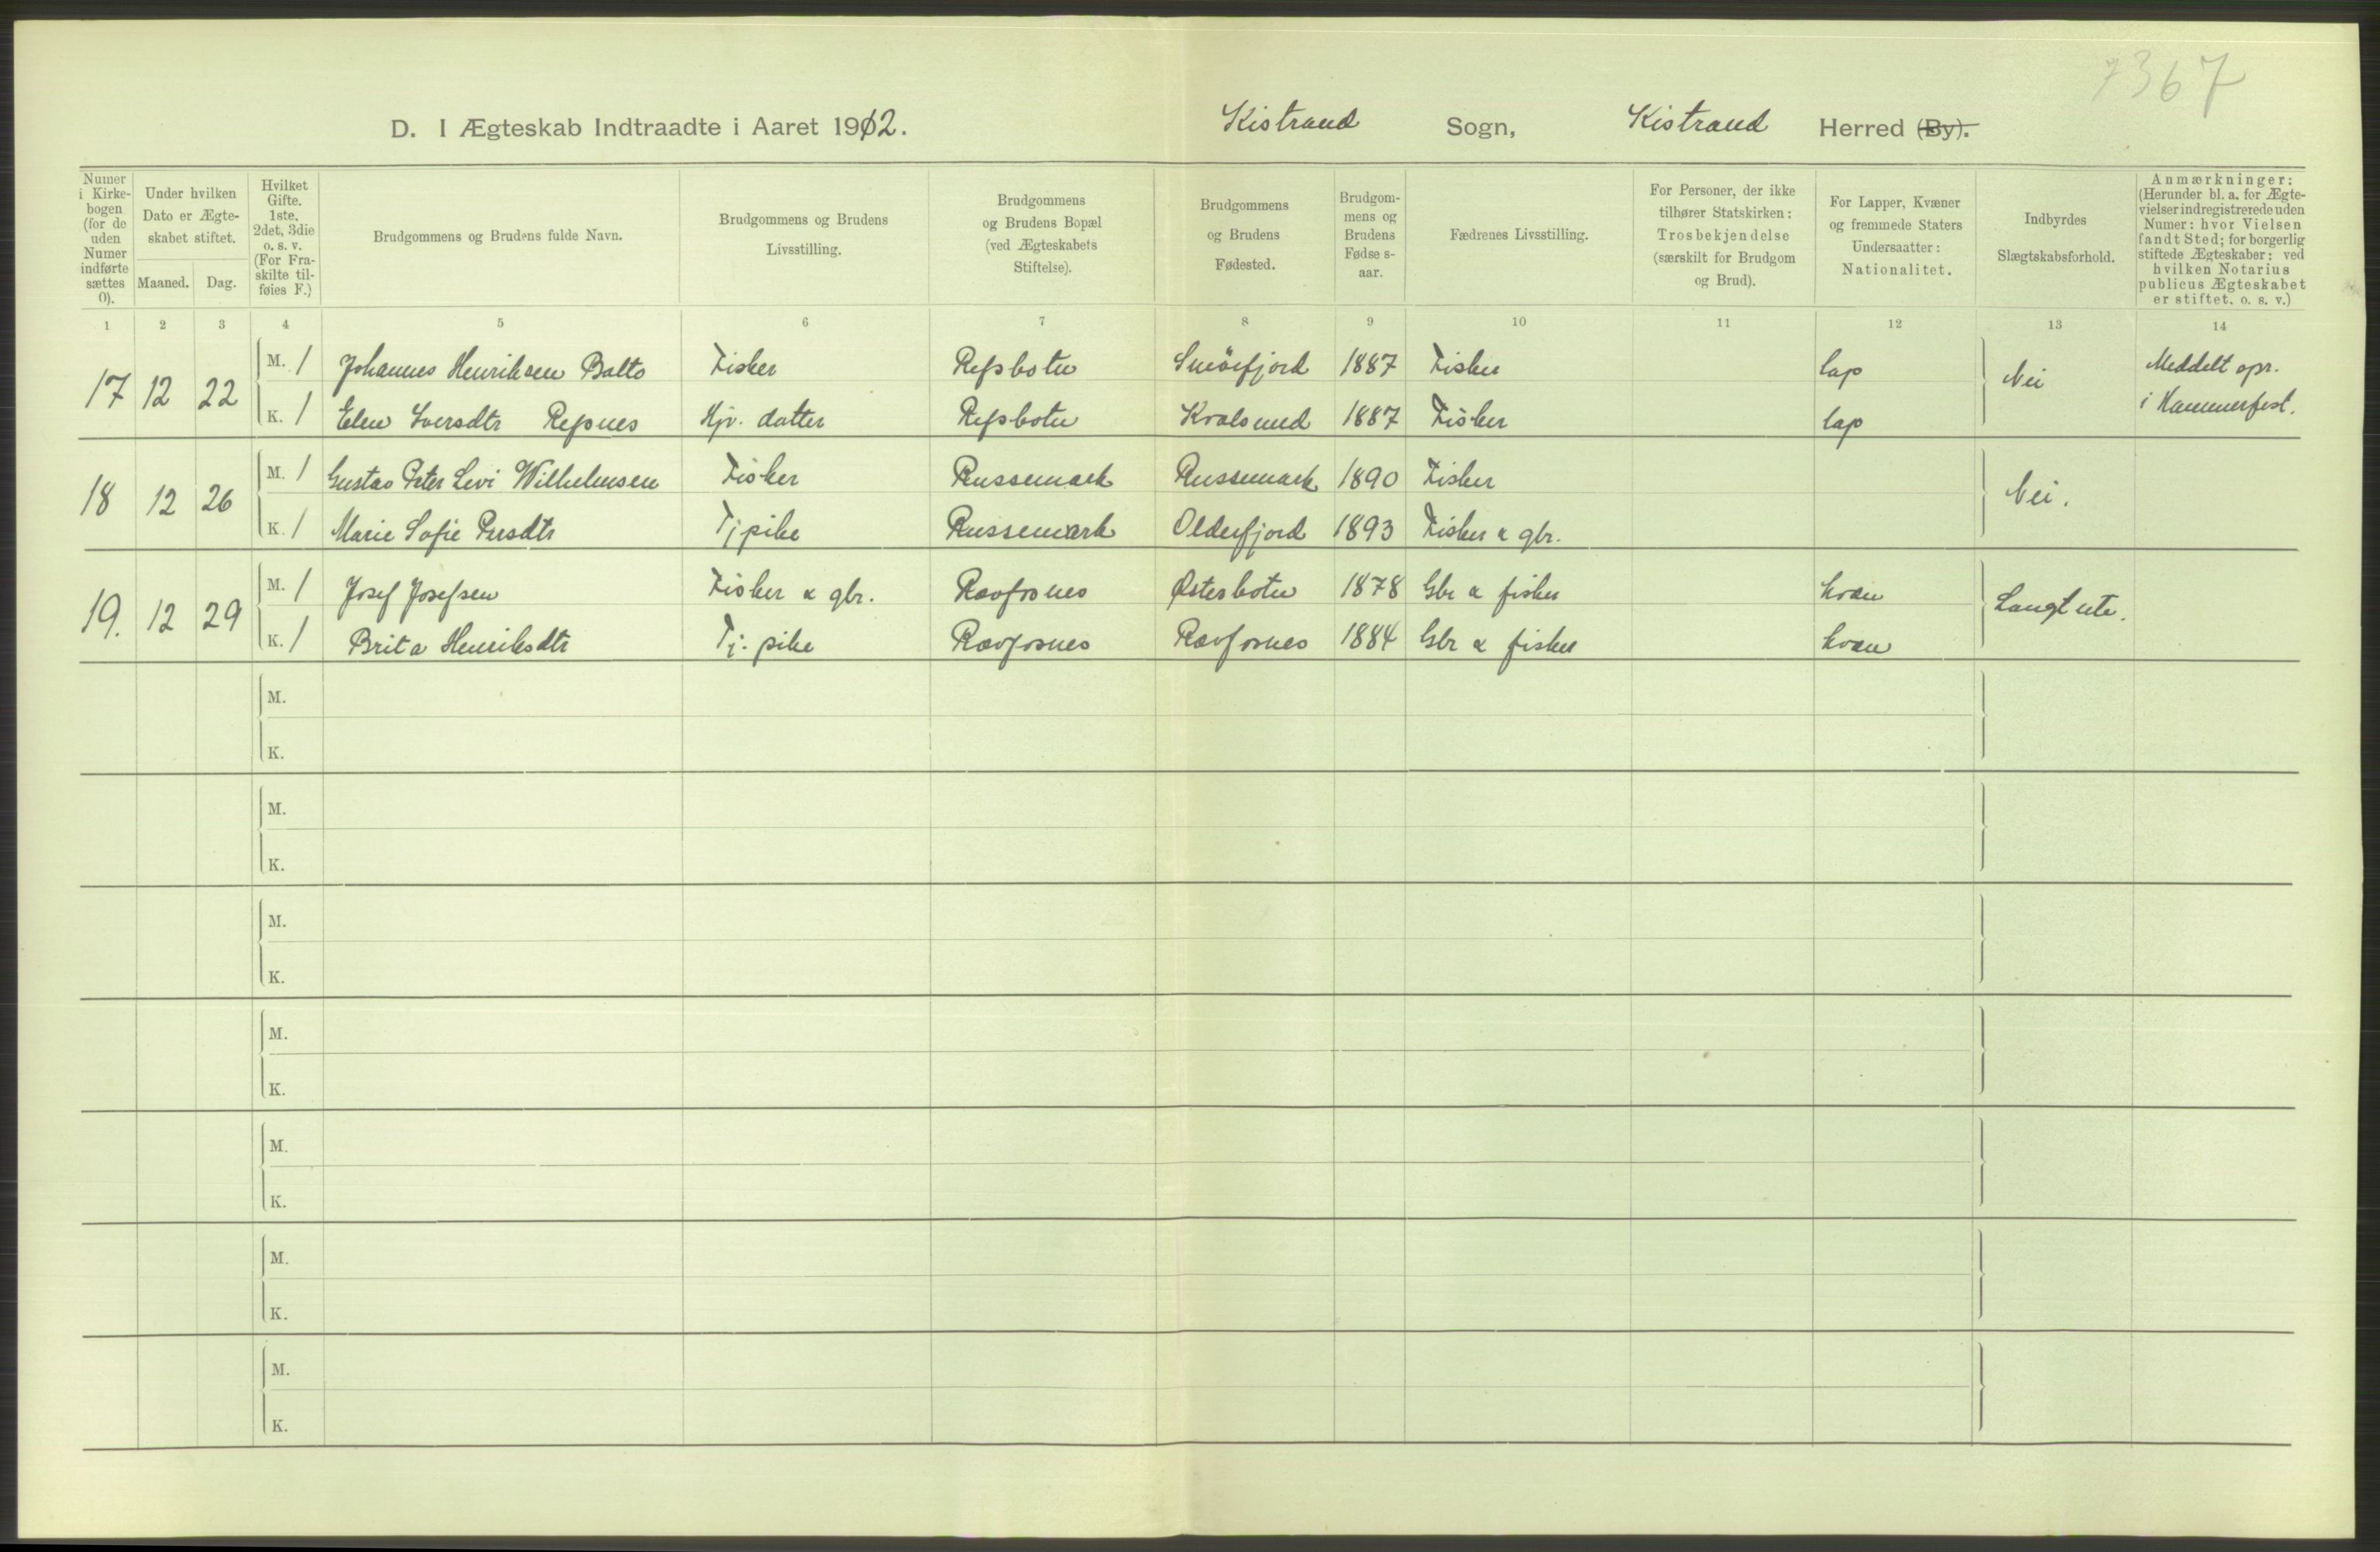 7367
D. I Ægteskab Indtraadte i Aaret 1912. Kistrand Sogn, Kistrand Herred (By).
Numer i Kirkebogen (for de uden Numer indførte sættes 0).
Under hvilken Dato er Ægteskabet stiftet.
Maaned. Dag.
Hvilket Gifte. 1ste, 2det, 3die o. s. v. (For Fraskilte tilføies F.)
Brudgommens og Brudens fulde Navn.
Brudgommens og Brudens Livsstilling.
Brudgommens og Brudens Bopæl (ved Ægteskabets Stiftelse).
Brudgommens og Brudens Fødested.
Brudgommens og Brudens Fødselsaar.
Fædrenes Livsstilling.
For Personer, der ikke tilhører Statskirken: Trosbekjendelse (særskilt for Brudgom og Brud).
For Lapper, Kvæner og fremmede Staters Undersaatter: Nationalitet.
Indbyrdes Slægtskabsforhold.
Anmærkninger: (Herunder bl. a. for Ægtevielser indregistrerede uden Numer: hvor Vielsen fandt Sted; for borgerlig stiftede Ægteskaber: ved hvilken Notarius publicus Ægteskabet er stiftet. o. s. v.)
1 2 3 4 5 6 7 8 9 10 11 12 13 14
17 12 22 M. 1 Johannes Henriksen Balto Fisker Refsbotn Smörfjord 1887 Fisker lap Nei Meddelt opr.
K. 1 Elen Iversdtr Repnes Hjv. datter Refsbotn Kvalsund 1887 Fisker lap i Hammerfest.
18 12 26 M. 1 Gustav Peter Levi Wilhelmsen Fisker Russemark Russemark 1890 Fisker Nei.
K. 1 Marie Sofie Persdtr Tj pike Russemark Olderfjord 1893 Fisker & gbr.
19. 12 29 M. 1 Josef Josefsen Fisker & gbr. Østerbotn 1878 Gbr & fisker kvæn Langt ute.
K. 1 Brita Henriksdtr Tj. pike 1884 Gbr & fisker kvæn
M.
K.
M.
K.
M.
K.
M.
K.
M.
K.
M.
K.
M.
K.